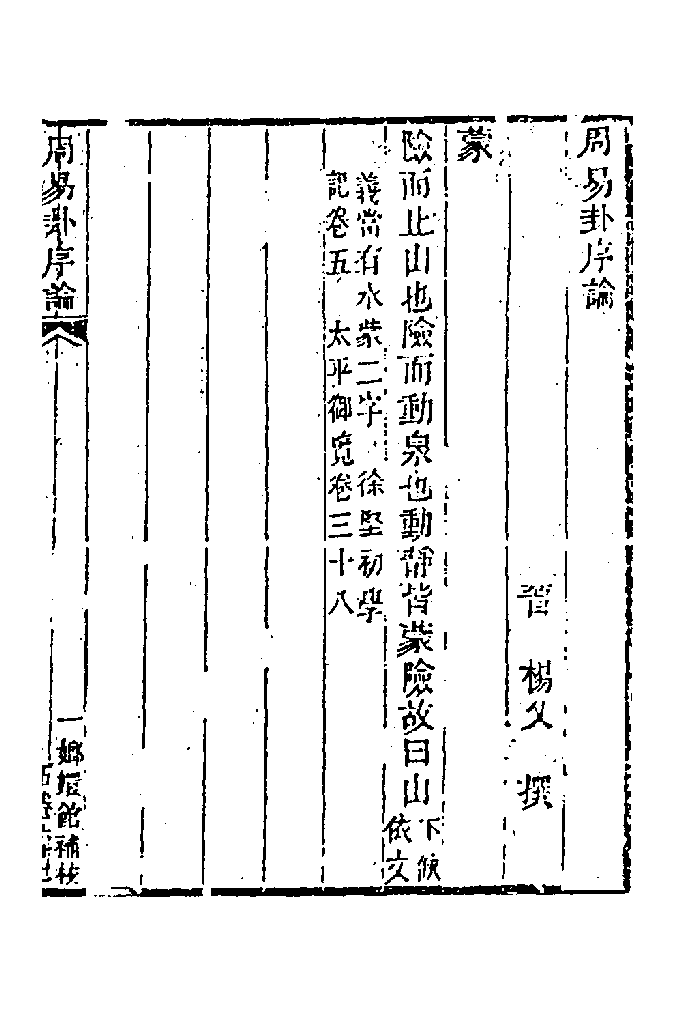 周易卦序論
晉　楊乂　撰
蒙
險而止山也險而動泉也動靜皆蒙險故曰山下缺依文
義當有水蒙二字　徐堅初學
記卷五　太平御覽卷三十八
周易卦序論
一　嫏嬛館補校